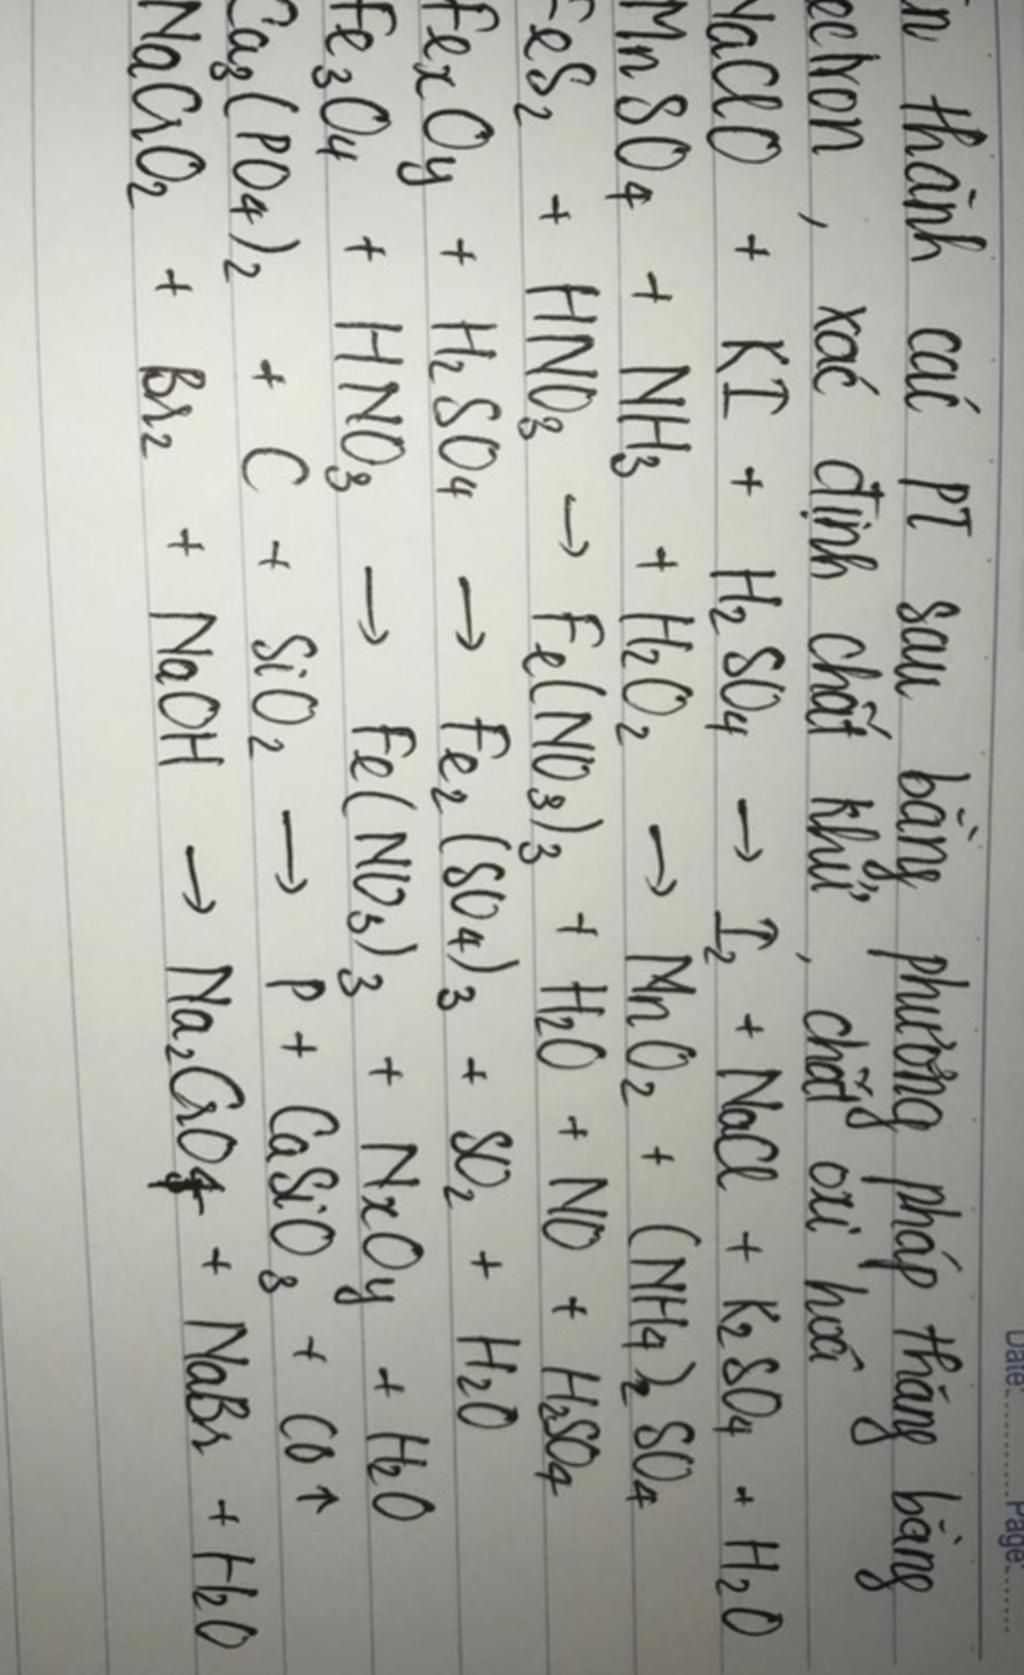 Date: ........ Page: ......
thành các PT sau bằng phương pháp thăng bằng
, xác định chất khử, chất oxi hoá
NaClO + KI + H₂SO₄ → I₂ + NaCl + K₂SO₄ + H₂O
MnSO₄ + NH₃ + H₂O₂ → MnO₂ + (NH₄)₂SO₄
FeS₂ + HNO₃ → Fe(NO₃)₃ + H₂O + NO + H₂SO₄
FexOy + H₂SO₄ → Fe₂(SO₄)₃ + SO₂ + H₂O
Fe₃O₄ + HNO₃ → Fe(NO₃)₃ + NxOy + H₂O
Ca₃(PO₄)₂ + C + SiO₂ → P + CaSiO₃ + CO ↑
NaCrO₂ + Br₂ + NaOH → Na₂CrO₄ + NaBr + H₂O